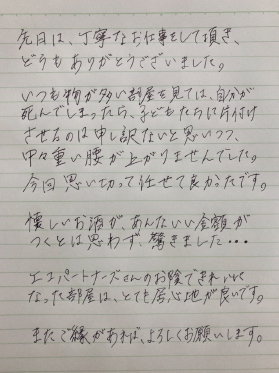 先日は、丁寧なお仕事をして頂き、
どうもありがとうございました。
いつも物が多い部屋を見ては、自分が
死んでしまったら、子どもたちに片付け
させるのは申し訳ないと思いつつ、
中々重い腰が上がりませんでした。
今回思い切って任せて良かったです。
懐しいお酒が、あんないい金額が
つくとは思わず、驚きました・・・
エコパートナーズさんのお陰できれいに
なった部屋は、とても居心地が良いです。
またご縁があれば、よろしくお願いします。